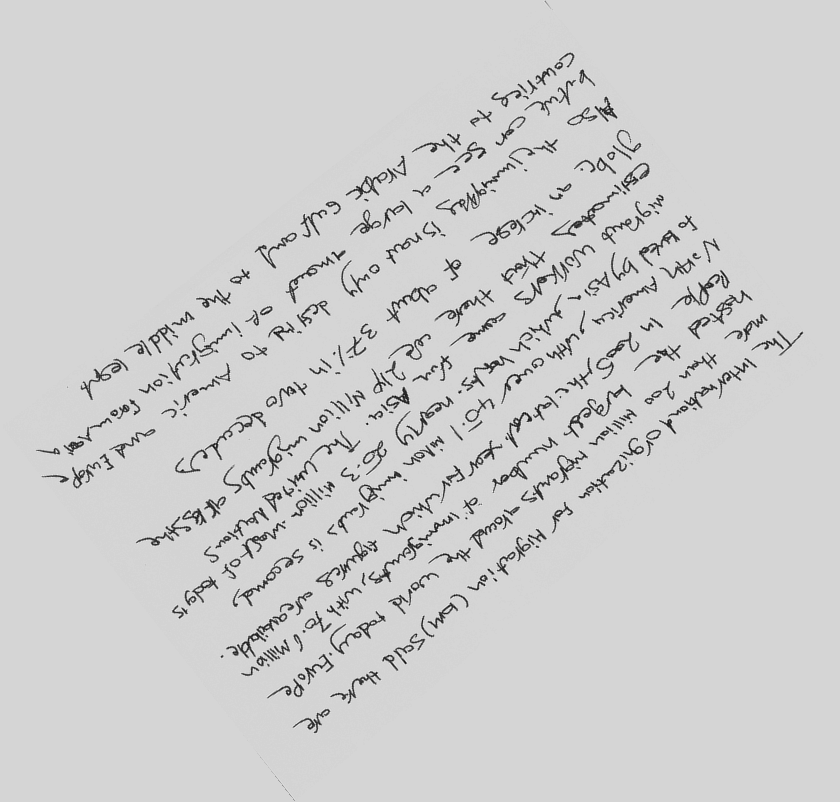 The International orgnization for Migration (IOM) Said there are
more than 200 Million migrants aroud the world today. Europe
hosted the largest number of immigrants, with 70.6 Million
People In 2005, the latest year for which figures are available.
North America, with over 45.1 million immigrants is second,
followed by Asia, which hosts nearly 25.3 Million. most of todays
migrant workers come from Asia. The United Nations
estimates that there are 214 Million migrants across the
globe. an increse of about 37% in two decades
the immigrants is not only to Americ and Europe
Also can see a large amout of immigration from Asia
countries to the Arabic Gulf and to the middle east